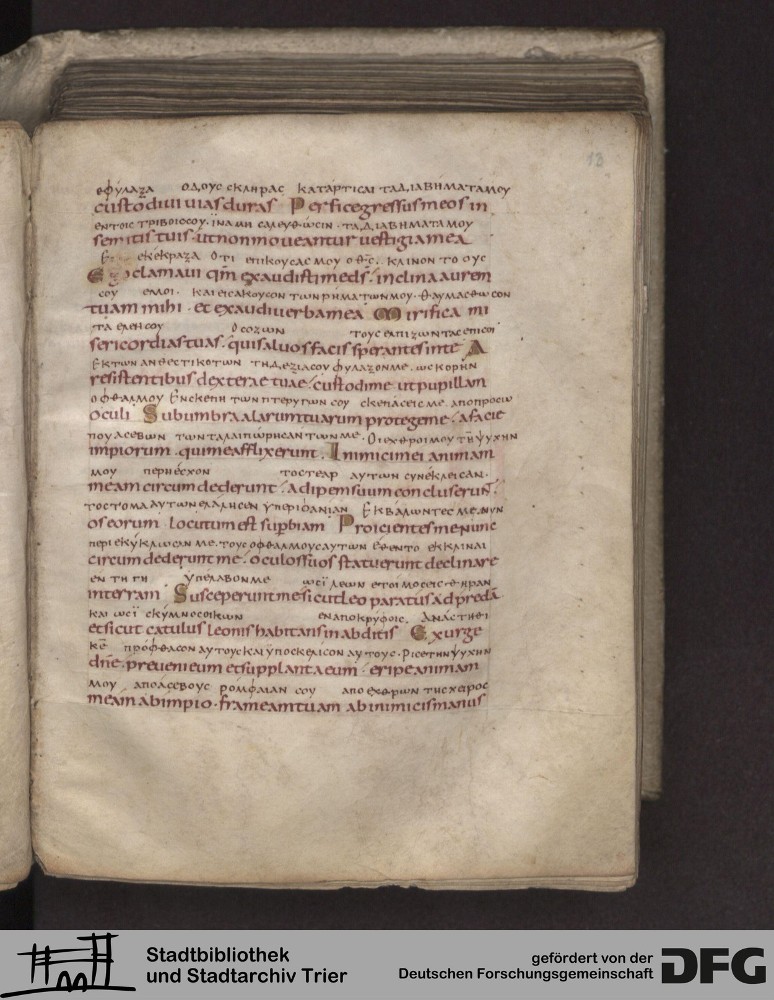 13
εφυλαζα οδους σκληρας καταρτισαι ταδιαβηματαμου
custodiui uias duras Perfice gressus meos in
εντοις τριβοισσου· ϊναμη σαλευθωσιν· ταδιαβηματαμου
semitis tuis· ut non moueantur uestigia mea
εκεκραζα οτι επικουσας μου ο θς· κλινον το ους
Ego clamaui qm exaudisti me ds· inclina aurem
σου εμοι· και εισακουσον των ρηματων μου· θαυμασθωσον
tuam mihi· et exaudi uerba mea Mirifica mi
τα ελεη σου ο σοζων τους ελπιζωντας επι σοι
sericordias tuas· qui saluos facis sperantes in te A
εκ των ανθεστικοτων τη δεξιασου φυλαξονμε· ως κορην
resistentibus dexterae tuae· custodi me ut pupillam
οφθαλμου εν σκεπη των πτερυγων σου σκεπασεις με· απο προσω
oculi Sub umbra alarum tuarum protege me· a facie
που ασεβων των ταλαιπωρησαντων με· οι εχθροι μου την ψυχην
impiorum· qui me afflixerunt· Inimici mei animam
μου περιεσχον το στεαρ αυτων συνεκλεισαν·
meam circumdederunt· adipem suum concluserunt·
το στομα αυτων ελαλησεν υπεριφανιαν Εκβαλωντες με νυν
os eorum locutum est supbiam Proicientes me nunc
περιεκυκλωσαν με· τους οφθαλμους αυτων εθεντο εκκλιναι
circumdederunt me· oculos suos statuerunt declinare
εν τη γη υπελαβον με ωσϊ λεων ετοιμος εις θηραν
in terram Susceperunt me sicut leo paratus ad predā
και ωσϊ σκυμνος οικων εν αποκρυφοις· Αναστηθι
et sicut catulus leonis habitans in abditis Exurge
κε προφθασον αυτους και υποσκελισον αυτους· ρισε την ψυχην
dne· preueni eum et supplanta eum· eripe animam
μου απο ασεβους ρομφαιαν σου απο εχθρων της χειρος
meam ab impio· frameam tuam ab inimicis manus
Stadtbibliothek
und Stadtarchiv Trier
gefördert von der
Deutschen Forschungsgemeinschaft
DFG